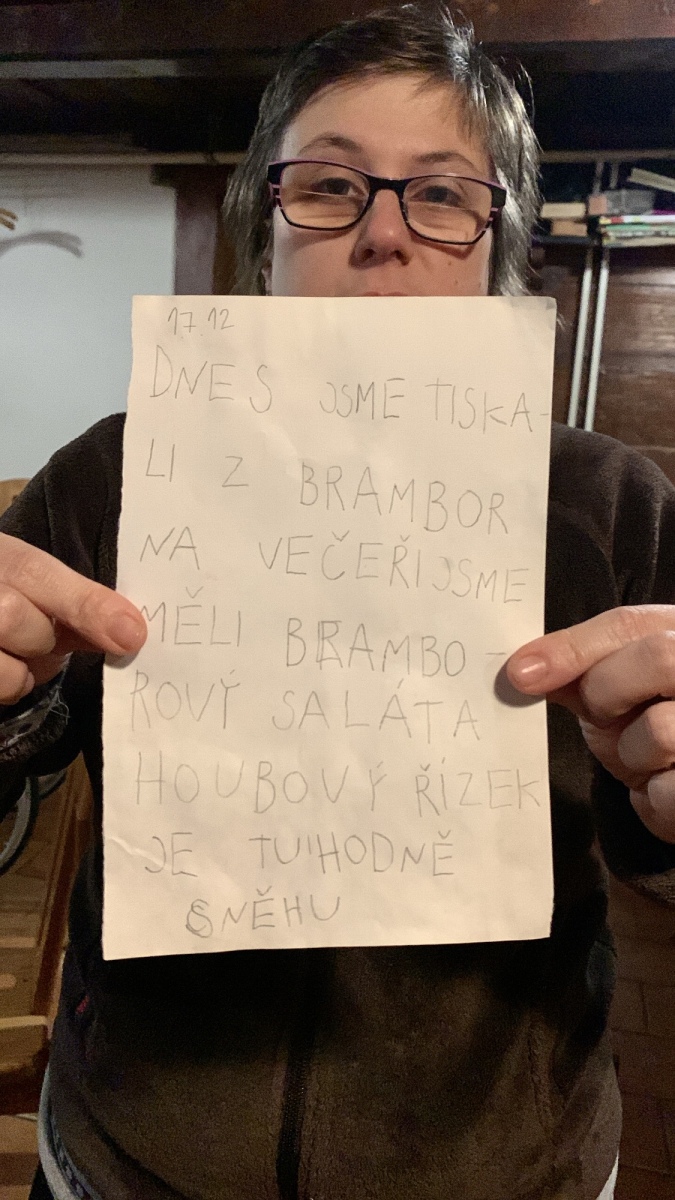 17.12
DNES JSME TISKA-
LI Z BRAMBOR
NA VEČEŘI JSME
MĚLI BRAMBO-
ROVÝ SALÁT A
HOUBOVÝ ŘÍZEK
JE TU HODNĚ
SNĚHU